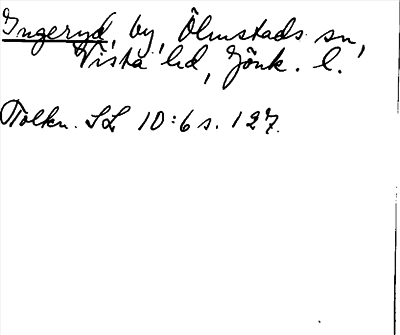 Ingeryd, by, Ölmstads sn,
Vista hd, Jönk. l.
Tolkn. SL 10:6 s. 127.